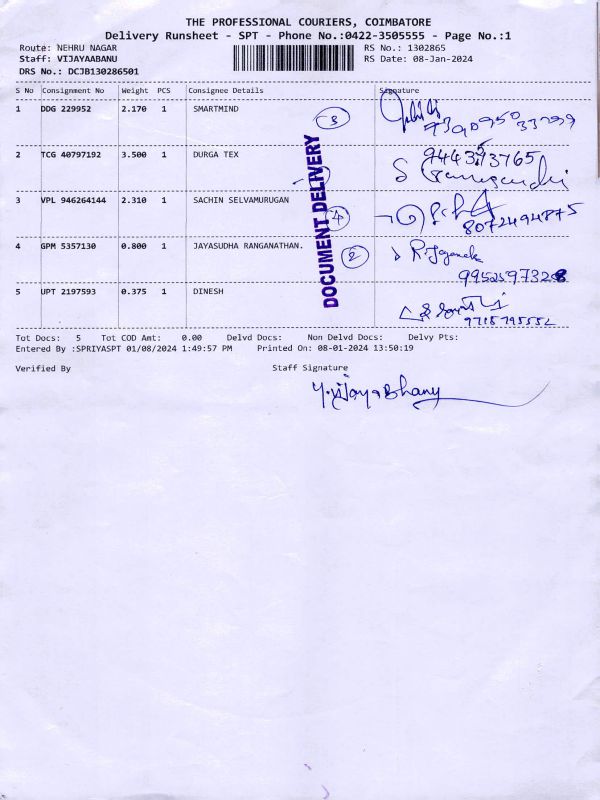 THE PROFESSIONAL COURIERS, COIMBATORE
Delivery Runsheet - SPT - Phone No.:0422-3505555 - Page No.:1
Route: NEHRU NAGAR RS No.: 1302865
Staff: VIJAYAABANU RS Date: 08-Jan-2024
DRS No.: DCJB130286501
S No Consignment No Weight PCS Consignee Details Signature
1 DDG 229952 2.170 1 SMARTMIND 3
2 TCG 40797192 3.500 1 DURGA TEX
3 VPL 946264144 2.310 1 SACHIN SELVAMURUGAN 4
8072494875
4 GPM 5357130 0.800 1 JAYASUDHA RANGANATHAN. 2
5 UPT 2197593 0.375 1 DINESH
DOCUMENT DELIVERY
Tot Docs: 5 Tot COD Amt: 0.00 Delvd Docs: Non Delvd Docs: Delvy Pts:
Entered By :SPRIYASPT 01/08/2024 1:49:57 PM Printed On: 08-01-2024 13:50:19
Verified By Staff Signature
Y.VijayaBhany